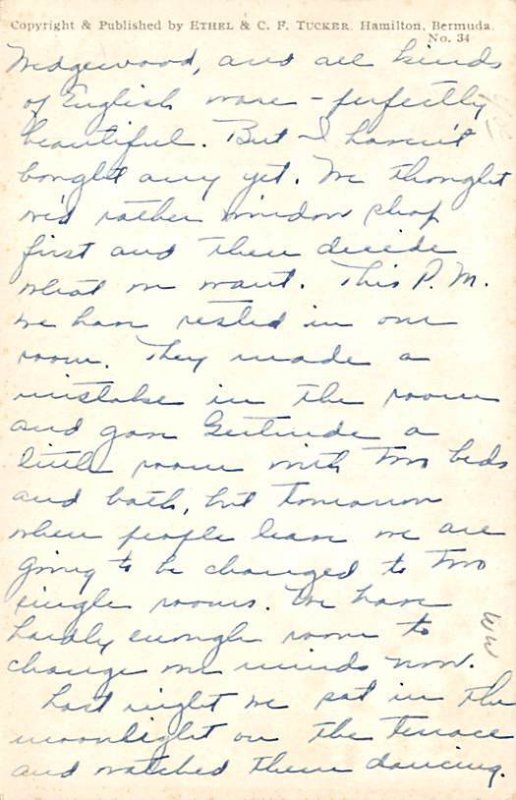 Copyright & Published by ETHEL & C. F. TUCKER. Hamilton, Bermuda.
No. 34
Wedgewood, and all kinds
of English ware - perfectly
beautiful. But I haven't
bought any yet. We thought
we'd rather window shop
first and then decide
what we want. This P.M.
we have rested in our
room. They made a
mistake in the room
and gave Gertrude a
little room with two beds
and bath, but tomorrow
when people leave we are
going to be changed to two
single rooms. We have
hardly enough room to
change our minds now.
Last night we sat in the
moonlight on the terrace
and watched them dancing.